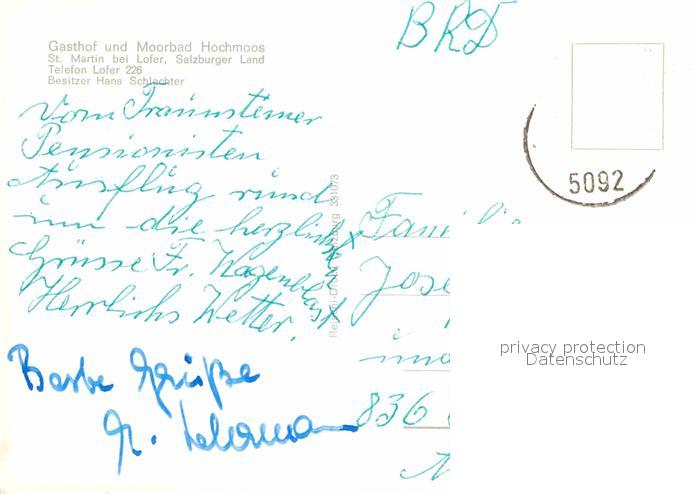 BRD
Gasthof und Moorbad Hochmoos
St. Martin bei Lofer, Salzburger Land
Telefon Lofer 226
Besitzer Hans Schlechter
5092
Vom Traunsteiner
Pensionisten
Ausflug rund
um die herzlichsten
Grüsse Fr. Wagenblast
Herrlichs Wetter.
331073
Beste Grüße
Familie
Jose
und
836
privacy protection
Datenschutz